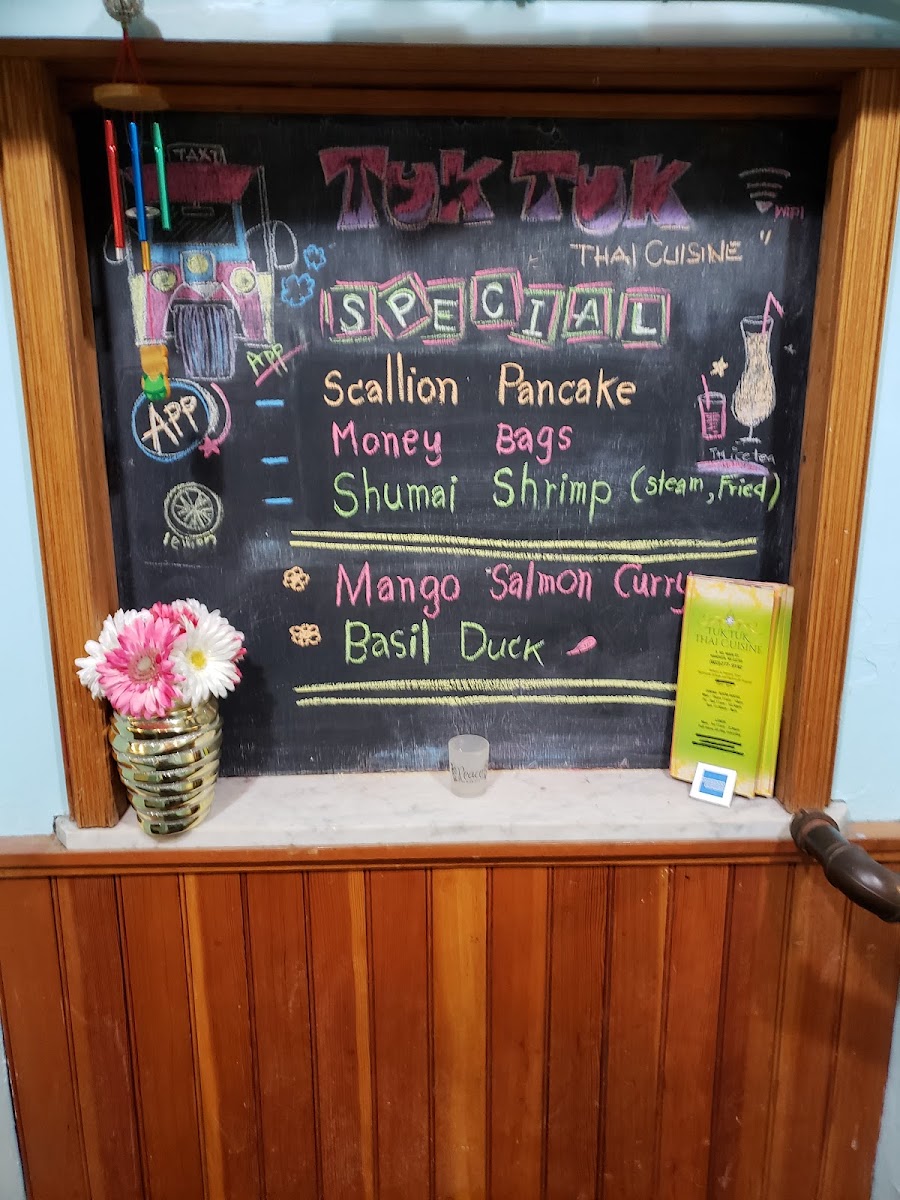 TAXI
TUK TUK
WIFI
THAI CUISINE
SPECIAL
APP
Scallion Pancake
APP
Money Bags
Shumai Shrimp (steam, Fried)
Mango Salmon Curry
Basil Duck
TUK TUK
THAI CUISINE
Peace